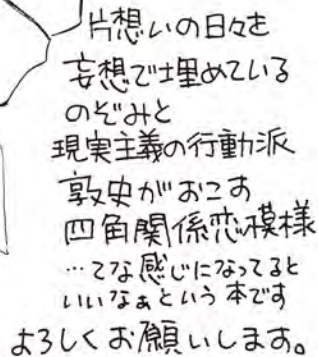 片想いの日々を
妄想で埋めている
のぞみと
現実主義の行動派
敦史がおこす
四角関係恋模様
…てな感じになってると
いいなぁという本です
よろしくお願いします。